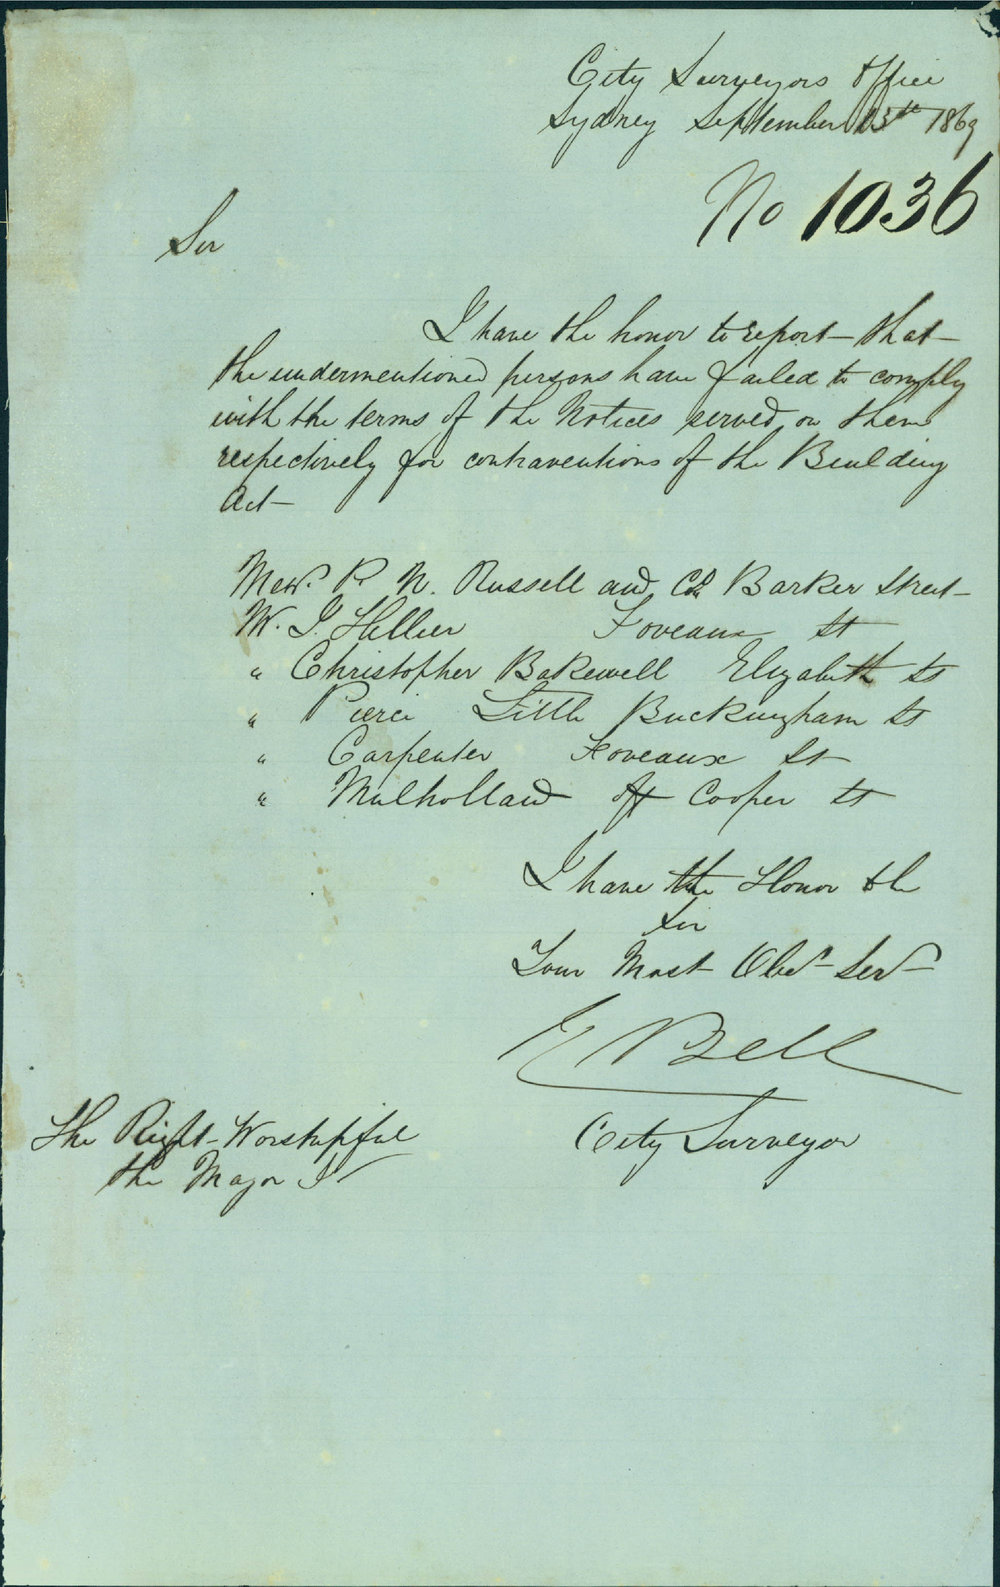 City Surveyors Office
Sydney September 13th 1869
No 1036
Sir
I have the honor to report - that -
the undermentioned persons have failed to comply
with the terms of the Notices served on them
respectively for contraventions of the Building
Act -
Messrs P. N. Russell and Co. Barker Street -
Mr. J. Hellier Foveaux St
" Christopher Bakewell Elizabeth St
" Pierce Little Buckingham St
" Carpenter Foveaux St
" Mulholland off Cooper St
I have the Honor to be
Sir
Your Most Obet Servt
E Bell
City Surveyor
The Right Worshipful
the Mayor